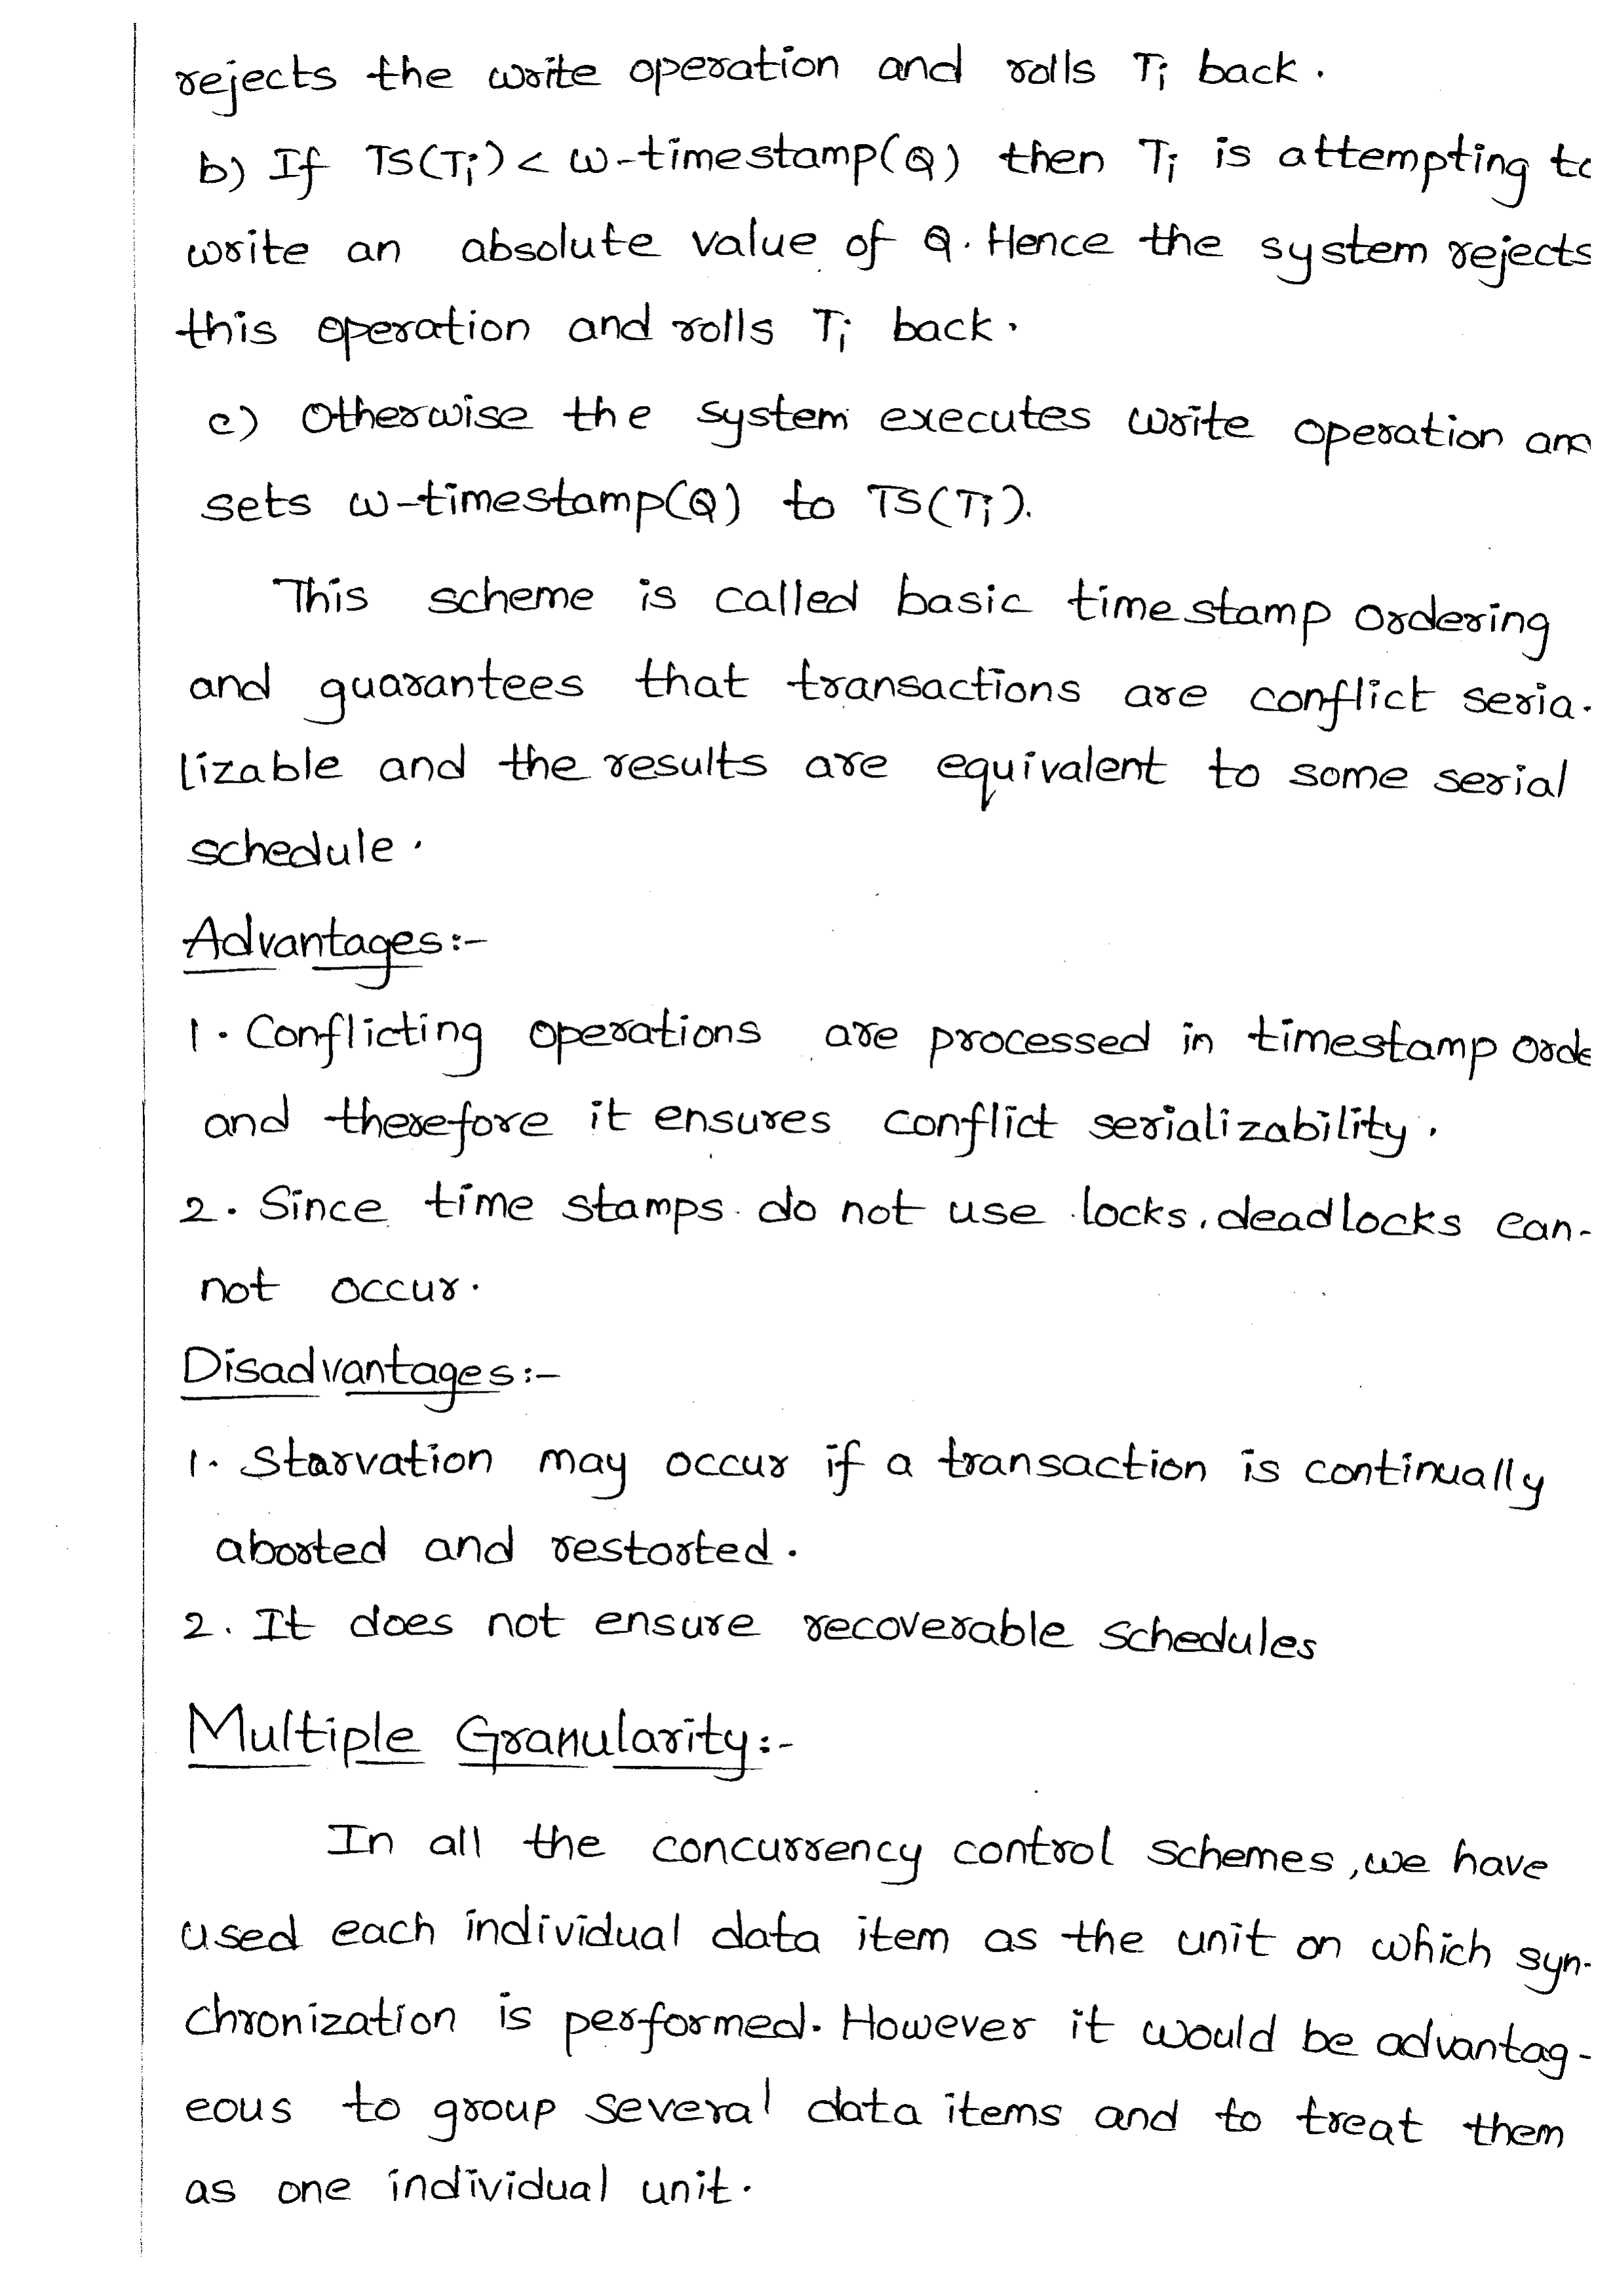 rejects the write operation and rolls Ti back.
b) If TS(Ti) < W-timestamp(Q) then Ti is attempting to
write an absolute value of Q. Hence the system rejects
this operation and rolls Ti back.
c) Otherwise the system executes write operation an
sets W-timestamp(Q) to TS(Ti).
This scheme is called basic timestamp ordering
and guarantees that transactions are conflict seria-
lizable and the results are equivalent to some serial
schedule.
Advantages:-
1. Conflicting operations are processed in timestamp orde
and therefore it ensures conflict serializability.
2. Since time stamps do not use locks, deadlocks can-
not occur.
Disadvantages:-
1. Starvation may occur if a transaction is continually
aborted and restorted.
2. It does not ensure recoverable schedules
Multiple Granularity:-
In all the concurrency control schemes, we have
used each individual data item as the unit on which syn-
chronization is performed. However it would be advantag-
eous to group several data items and to treat them
as one individual unit.